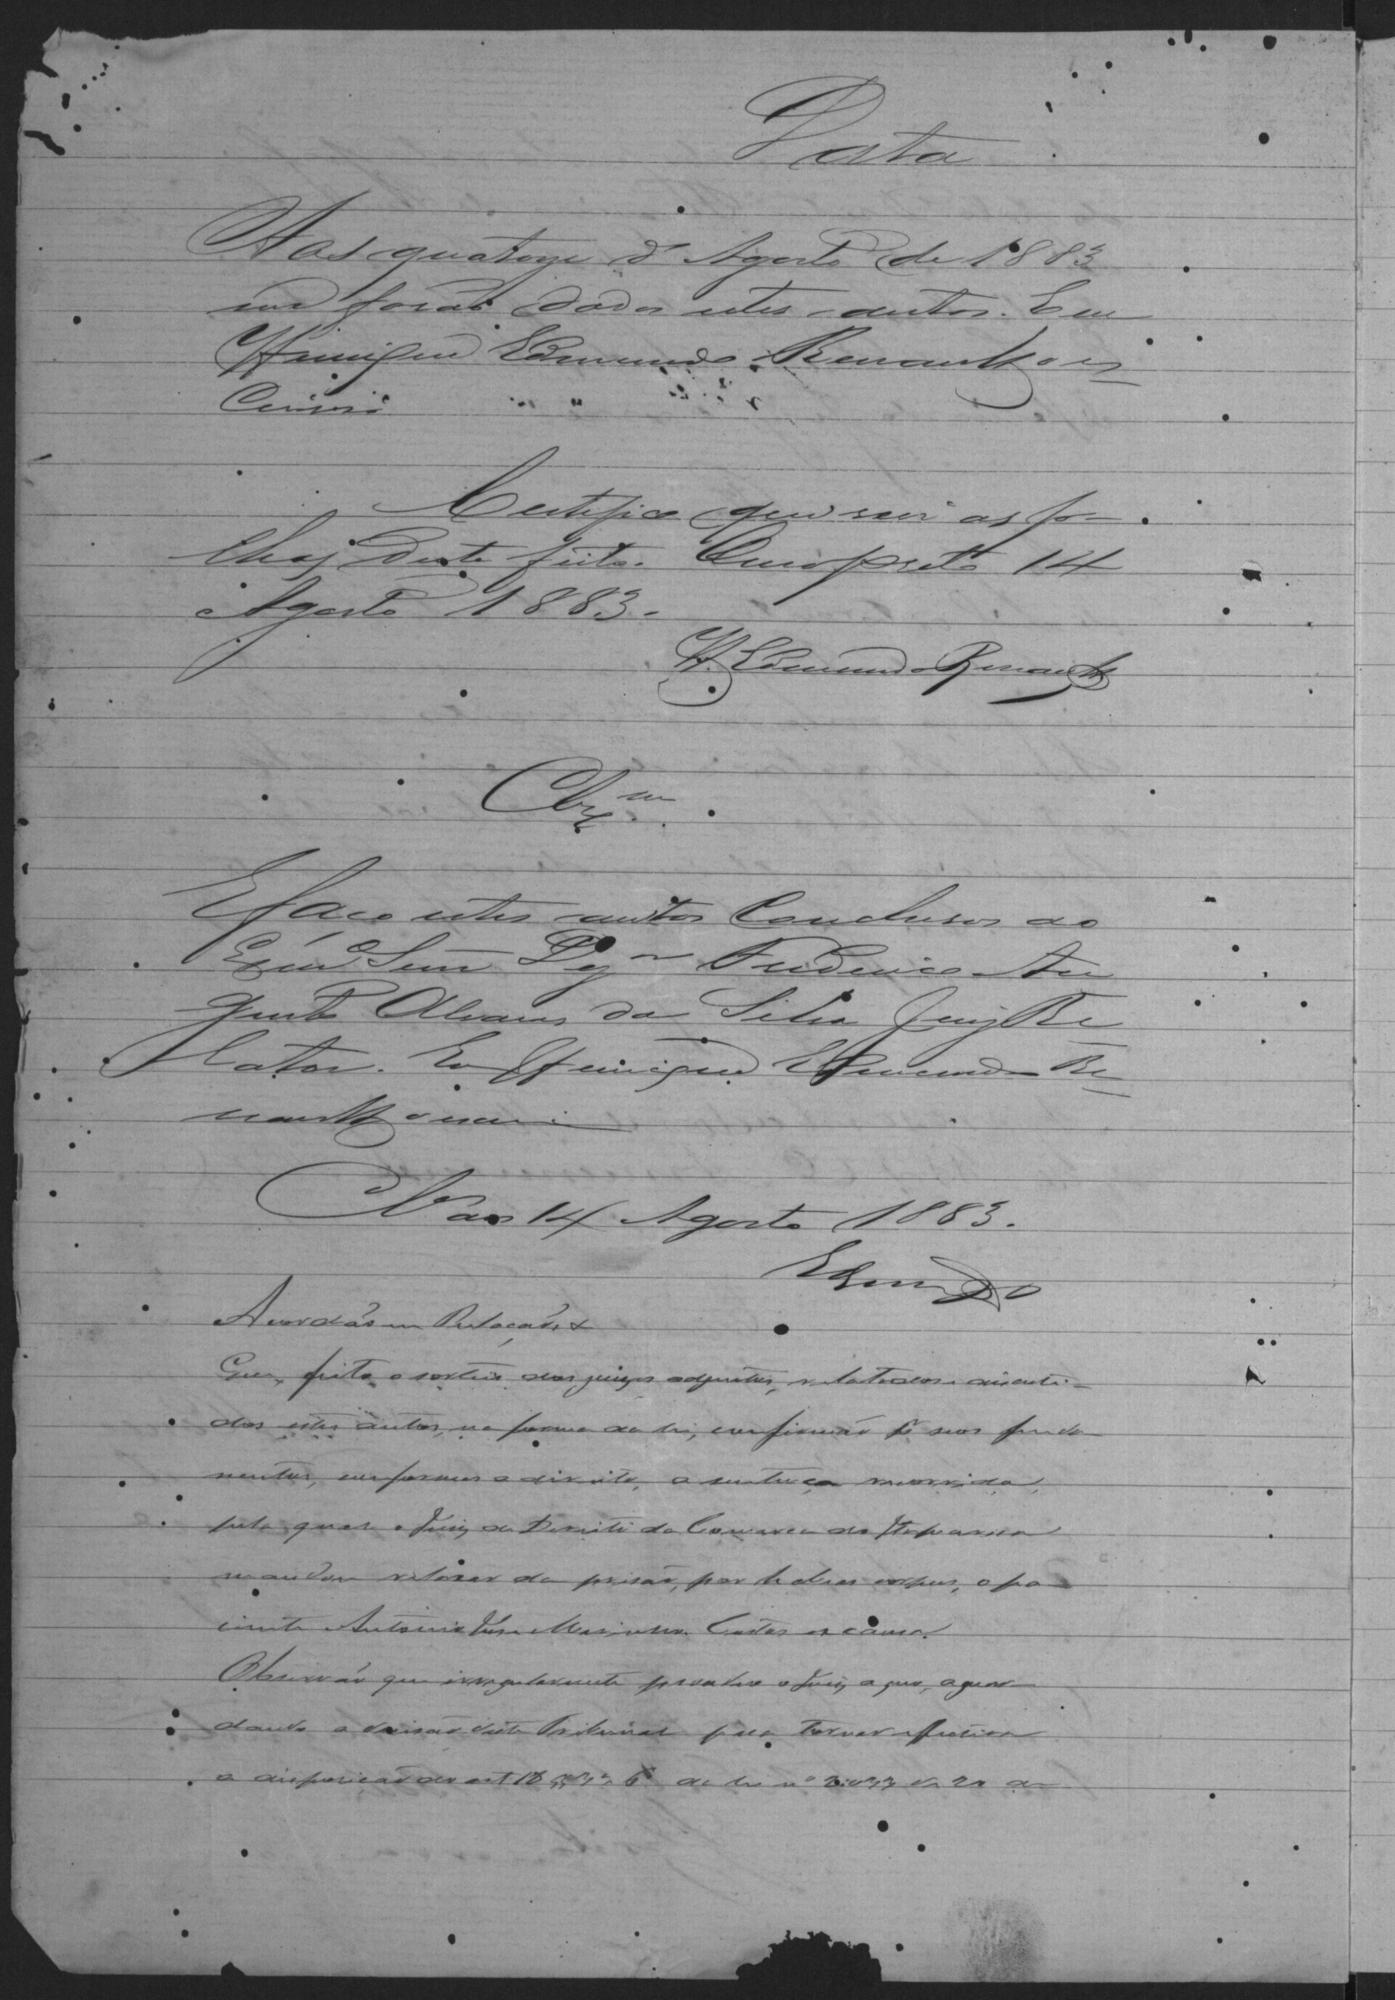 Data
Aos quatorze d'Agosto de 1883
me forão dados estes autos. Eu
Henrique Edmundo Renault o es
crivão
Certifico que revi as fo-
lhas deste feito. Ouro preto 14
Agosto 1883.
H. Edmundo Renault
Clz.m
E faço estes autos conclusos ao
Exmo Senr Dezor Frederico Au
gusto Alvares da Silva Juiz Re
lator. Eu Henrique Edmundo Re
nault o escrivão
Clzos aos 14 Agosto 1883.
Edmundo
Acordão em Relação &
Que, feito o sorteio dos juizes adjuntos, relatados e discuti-
dos estes autos, na forma da lei, confirmão pr seos funda-
mentos, conformes a direito, a sentença recorrida,
pela qual o Juiz de Direito da Comarca de
mandou relaxar da prisão, por habeas corpus, o pa-
ciente Antonio José Marinho. Custas ex causa.
Observão que irregularmente procedeo o Juiz a quo, aguar-
dando a decisão deste Tribunal para tornar effectiva
a disposição do art 18 da lei nº 2:033 de 20 de